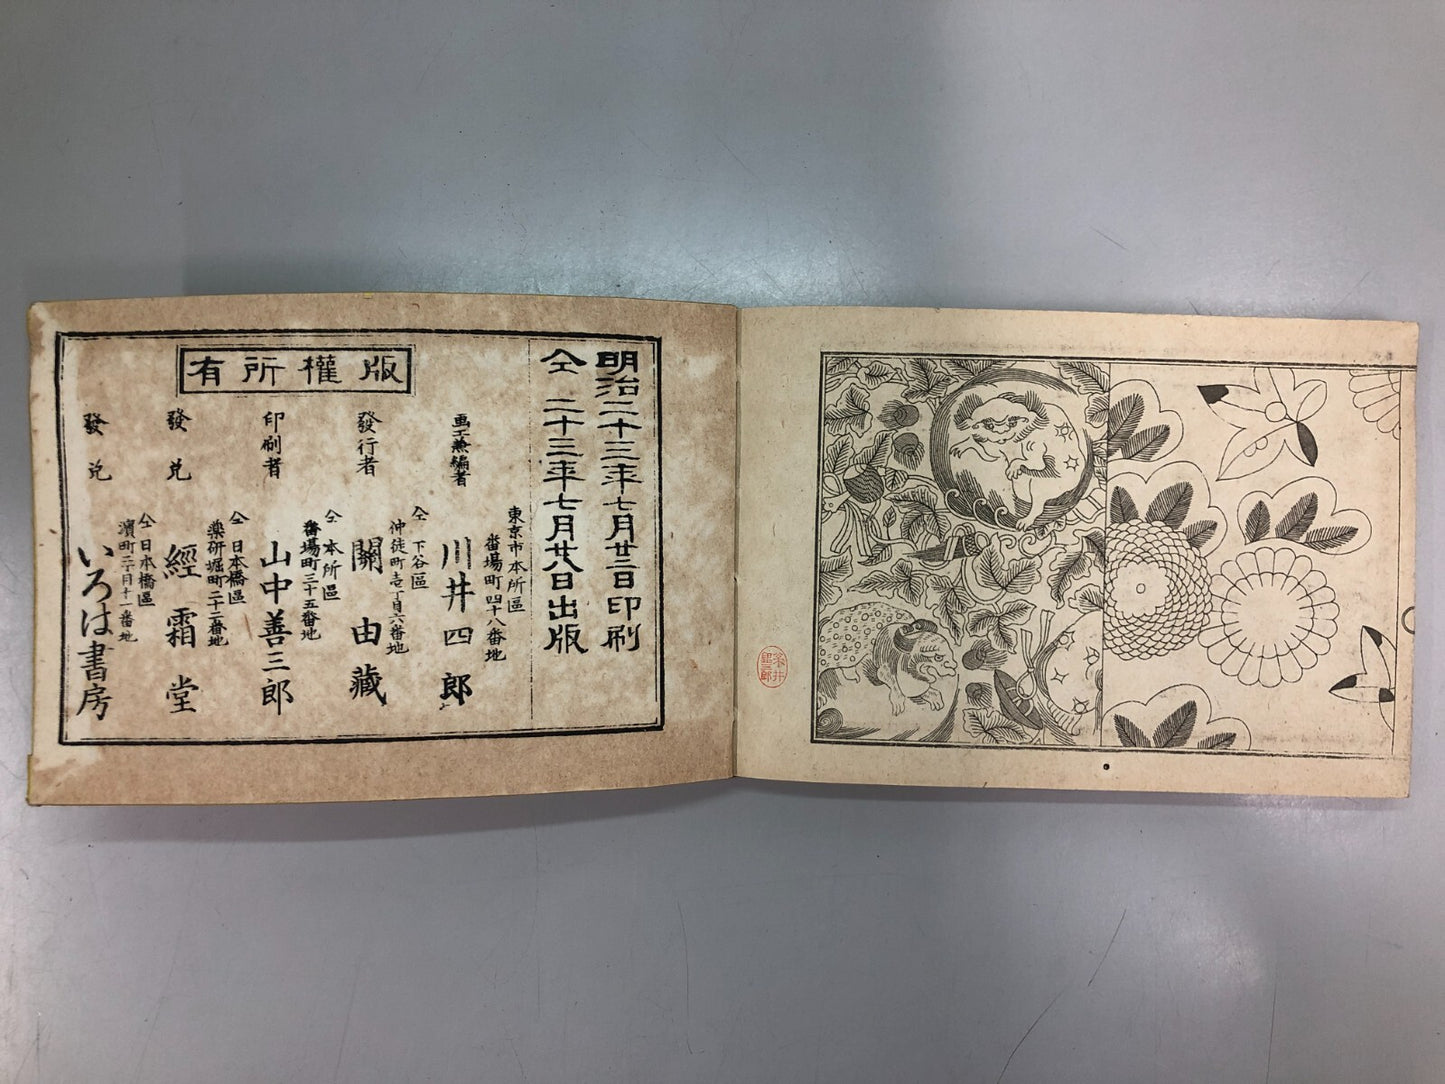 明治二十三年七月廿二日印刷
仝 二十三年七月廿八日出版
版權所有
東京市本所區
番場町四十八番地
画工兼編者
川井四郎
仝 下谷區
仲徒町壱丁目六番地
發行者
關由藏
仝 本所區
番場町三十五番地
印刷者
山中善三郎
仝 日本橋區
藥研堀町二十二番地
發兌
經霜堂
仝 日本橋區
濱町二丁目十一番地
發兌
いろは書房